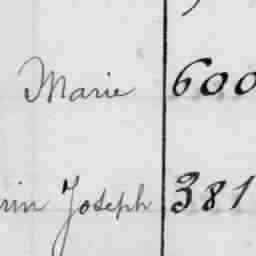 Marie 600
rin Joseph 381